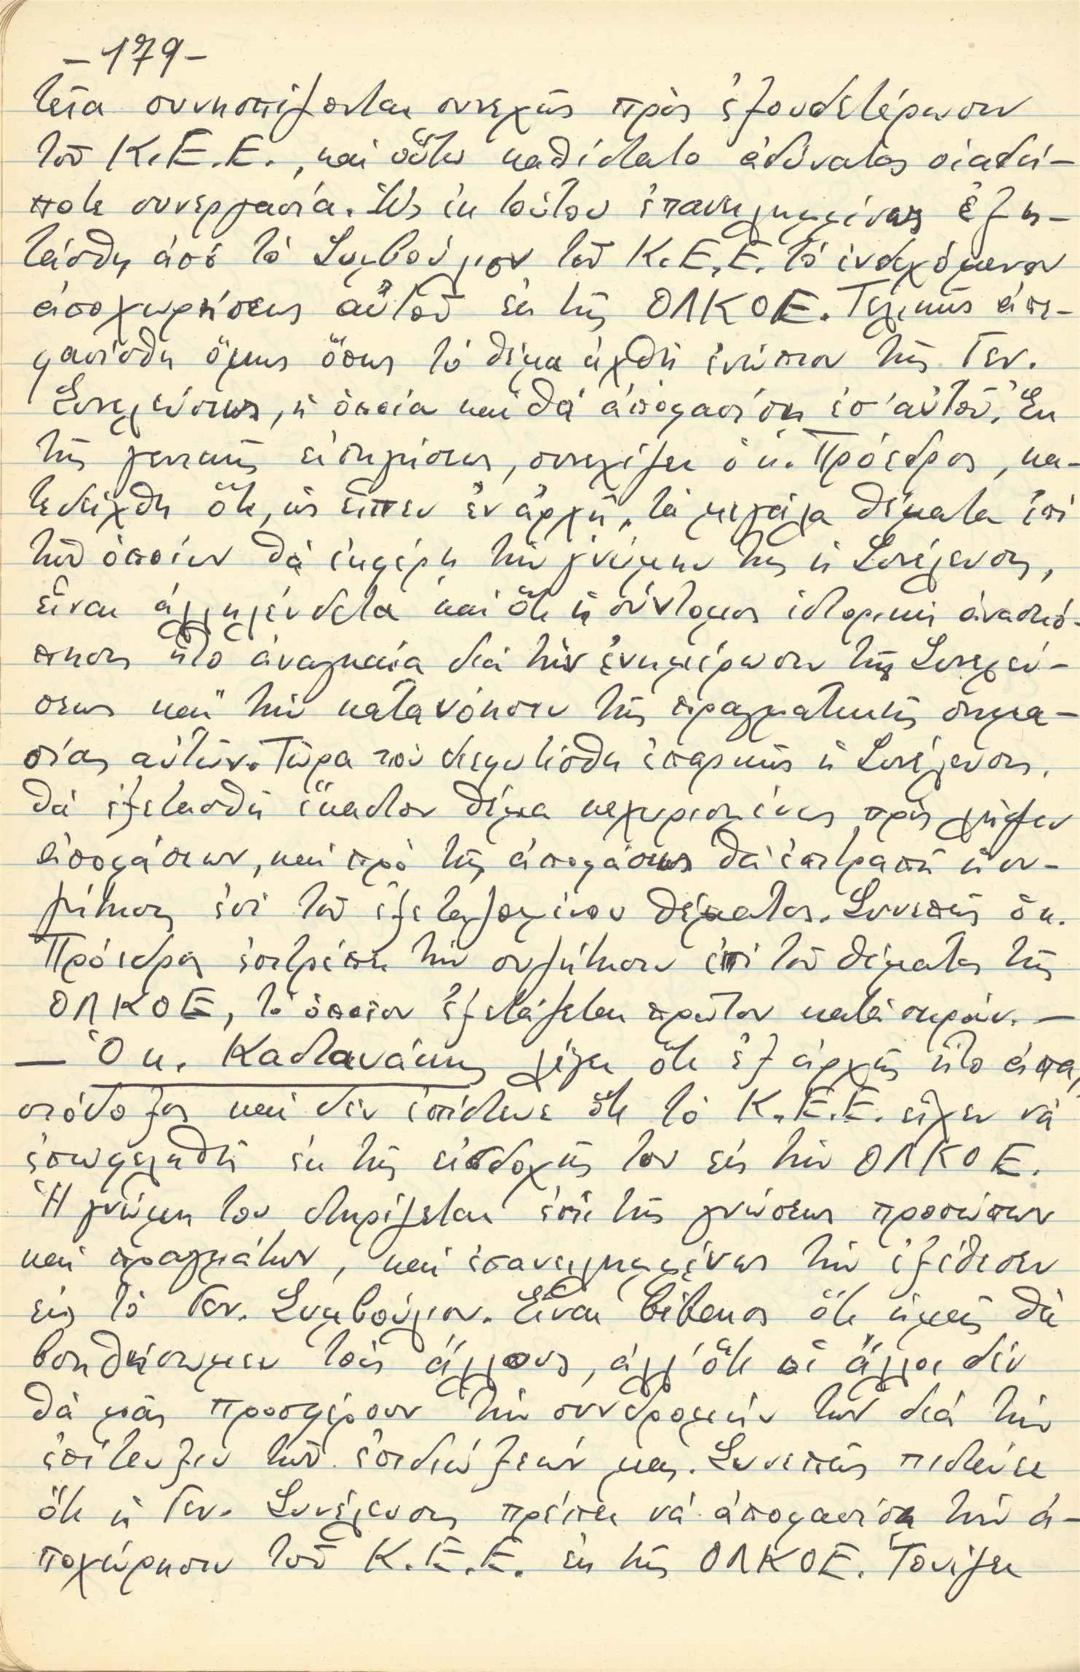 -179-
τεῖα συνησπίζονται συνεχῶς πρὸς ἐξουδετέρωσιν
τοῦ Κ.Ε.Ε., καὶ οὕτω καθίστατο ἀδύνατος οἱαδή-
ποτε συνεργασία. Ὡς ἐκ τούτου ἐπανειλημμένως ἐξη-
τάσθη ἀπό τὸ Συμβούλιον τοῦ Κ.Ε.Ε. τὸ ἐνδεχόμενον
ἀποχωρήσεως αὐτοῦ ἐκ τῆς ΟΛΚΟΕ. Τελικῶς ἀπε-
φασίσθη ὅμως ὅπως τὸ θέμα ἀχθῆ ἐνώπιον τῆς Γεν.
Συνελεύσεως, ἡ ὁποία καὶ θὰ ἀποφασίση ἐπ' αὐτοῦ. Ἐκ
τῆς γενικῆς εἰσηγήσεως, συνεχίζει ὁ κ. Πρόεδρος, κα-
τεδείχθη ὅτι, ὡς εἶπεν ἐν ἀρχῇ, τὰ μεγάλα θέματα ἐπὶ
τῶν ὁποίων θὰ ἐκφέρη τὴν γνώμην της ἡ Συνέλευσις,
εἶναι ἀλληλένδετα καὶ ὅτι ἡ σύντομος ἱστορικὴ ἀνασκό-
πησις ἦτο ἀναγκαία διὰ τὴν ἐνημέρωσιν τῆς Συνελεύ-
σεως καὶ τὴν κατανόησιν τῆς πραγματικῆς σημα-
σίας αὐτῶν. Τώρα ποὺ διεφωτίσθη ἐπαρκῶς ἡ Συνέλευσις,
θὰ ἐξετασθῆ ἕκαστον θέμα κεχωρισμένως πρὸς λῆψιν
ἀποφάσεων, καὶ πρὸ τῆς ἀποφάσεως θὰ ἐπιτραπῆ ἡ συ-
ζήτησις ἐπὶ τοῦ ἐξεταζομένου θέματος. Συνεπῶς ὁ κ.
Πρόεδρος ἐπιτρέπει τὴν συζήτησιν ἐπὶ τοῦ θέματος τῆς
ΟΛΚΟΕ, τὸ ὁποῖον ἐξετάζεται πρῶτον κατὰ σειράν. —
— Ὁ κ. Καστανάκης λέγει ὅτι ἐξ ἀρχῆς ἦτο ἀπαι-
σιόδοξος καὶ δὲν ἐπίστευε ὅτι τὸ Κ.Ε.Ε. εἶχεν νὰ
ἐπωφεληθῆ ἐκ τῆς εἰσδοχῆς του εἰς τὴν ΟΛΚΟΕ.
Ἡ γνώμη του στηρίζεται ἐπὶ τῆς γνώσεως προσώπων
καὶ πραγμάτων, καὶ ἐπανειλημμένως τὴν ἐξέθεσεν
εἰς τὸ Γεν. Συμβούλιον. Εἶναι βέβαιος ὅτι ἡμεῖς θὰ
βοηθήσωμεν τοὺς ἄλλους, ἀλλ' ὅτι οἱ ἄλλοι δὲν
θὰ μᾶς προσφέρουν τὴν συνδρομήν των διὰ τὴν
ἐπίτευξιν τῶν ἐπιδιώξεών μας. Συνεπῶς πιστεύει
ὅτι ἡ Γεν. Συνέλευσις πρέπει νὰ ἀποφασίση τὴν ἀ-
ποχώρησιν τοῦ Κ.Ε.Ε. ἐκ τῆς ΟΛΚΟΕ. Τονίζει